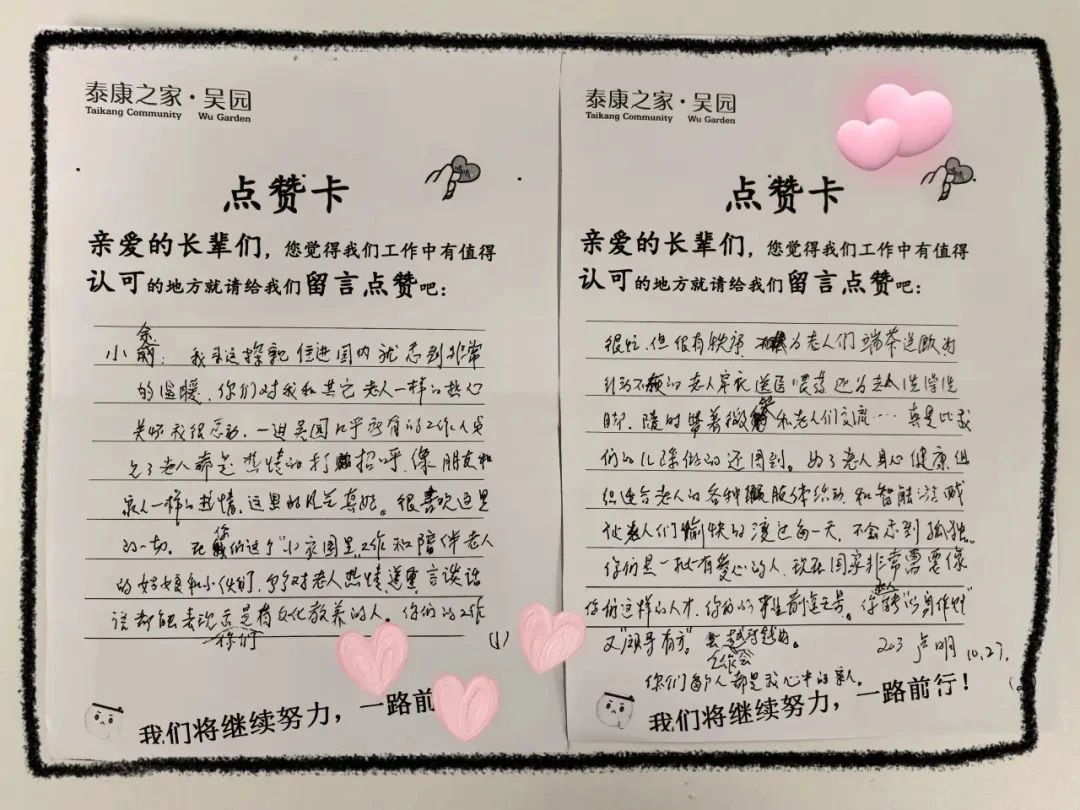 泰康之家·吴园
Taikang Community Wu Garden
点赞卡
亲爱的长辈们，您觉得我们工作中有值得
认可的地方就请给我们留言点赞吧：
小余： 我来这探亲住进园内就感到非常
的温暖，你们对我和其它老人一样的热心
关怀我很感动，一进吴园所有的工作人员
见了老人都是热情的打招呼，像朋友和
家人一样的热情，这里的风气真好。很喜欢这里
的一切。在你们这个"小家园里"工作和陪伴老人
的姑娘和小伙们，对老人热情尊重言谈话
语都能表现出是有文化教养的人。你们的工作
你们
(1)
我们将继续努力，一路前
泰康之家·吴园
Taikang Community Wu Garden
点赞卡
亲爱的长辈们，您觉得我们工作中有值得
认可的地方就请给我们留言点赞吧：
很忙，但很有秩序，为老人们端茶送饭为
行动不便的老人穿衣送医喂药还为老人洗澡洗
脚，随时带着微笑和老人们交流……真是比我
们的儿孫做的还周到。为了老人身心健康组
织适合老人的各种活动和智能游戏
让老人们愉快的渡过每一天，不会感到孤独。
你们是一批有爱心的人，现在国家非常需要像
你们这样的人才，你们的事业前
又"领导有方"。会越来越好。
203 卢明 10.27.
你们每个人都是我心中的亲人。
我们将继续努力，一路前行！